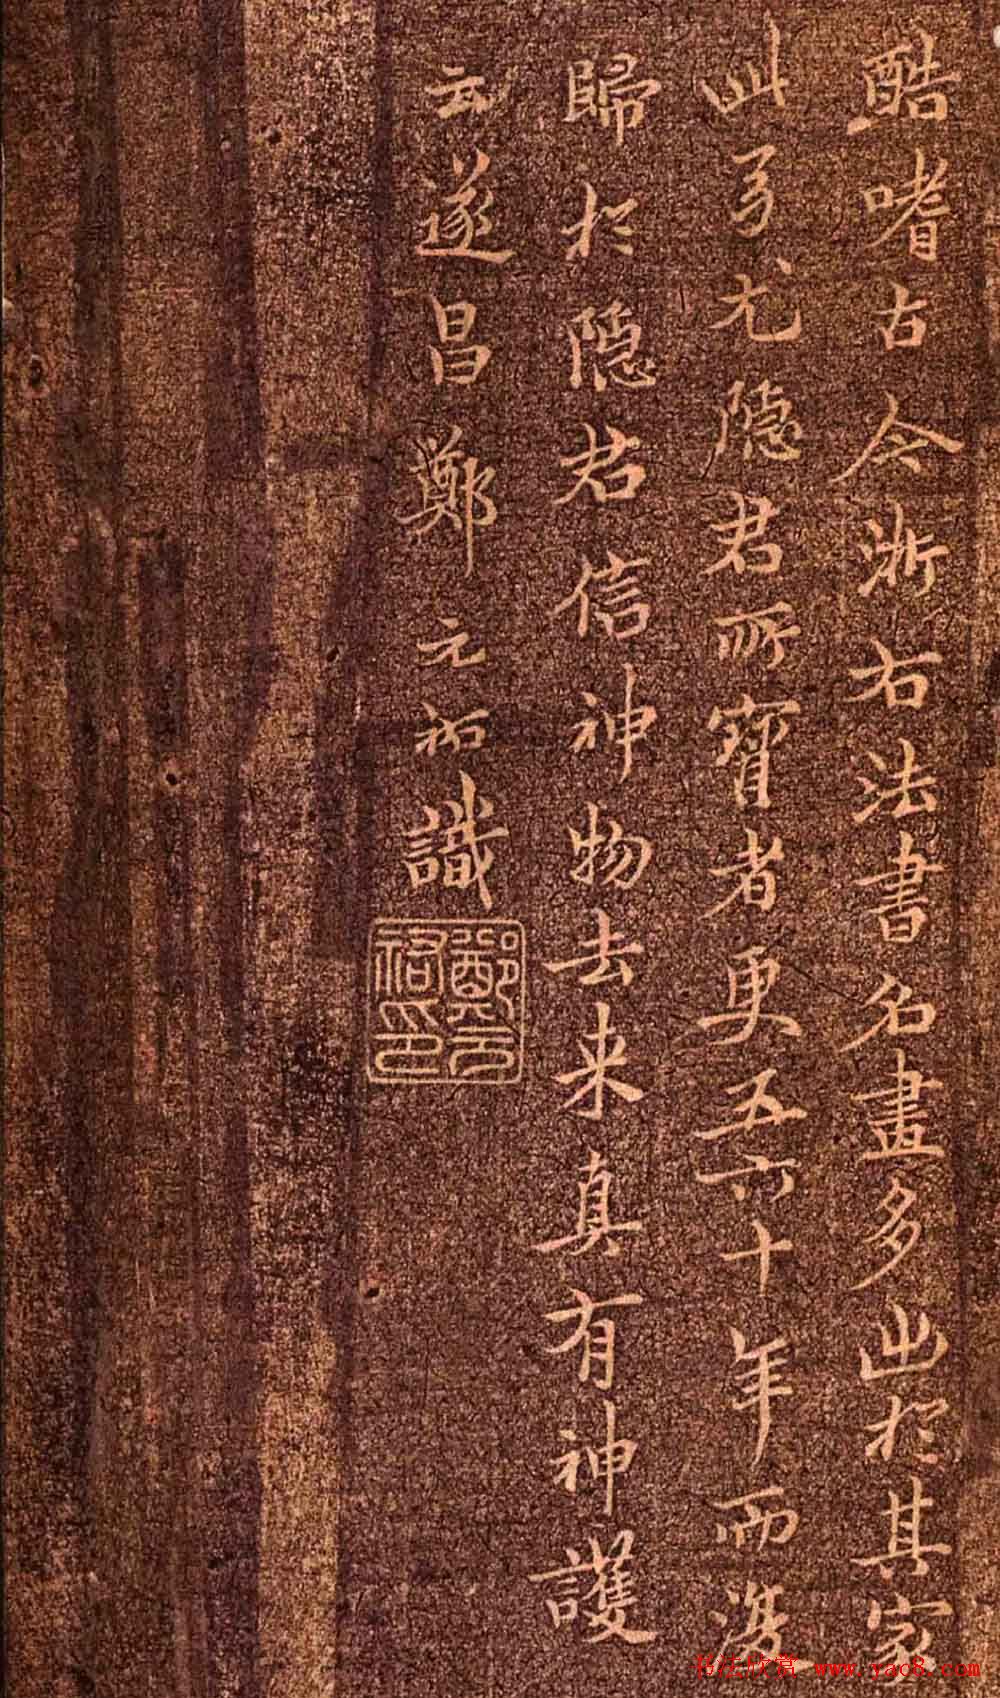 酷嗜古今浙右法書名畫多出於其家
此乃尤隱君所寶者更五六十年而復
歸於隱君信神物去来真有神護
云遂昌鄭元祐識
鄭元祐印
书法欣赏 www.yac8.com